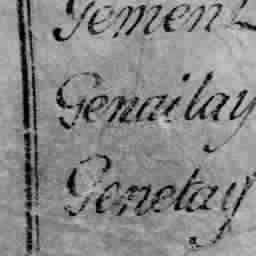 Gement
Genailay
Genetay